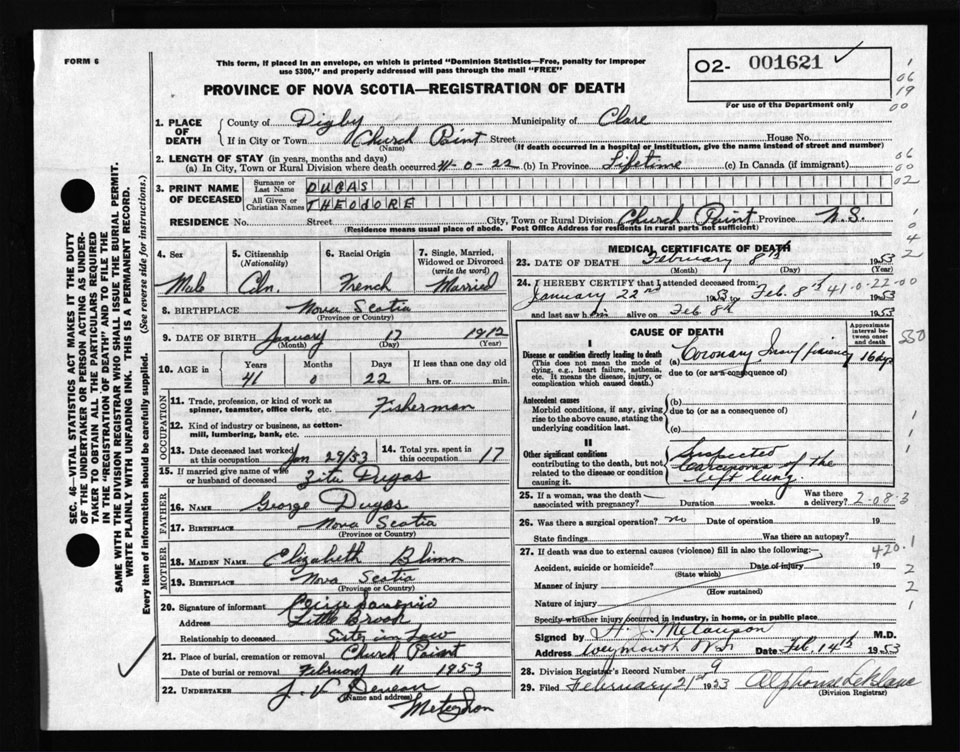 FORM 6
This form, if placed in an envelope, on which is printed "Dominion Statistics—Free, penalty for improper
use $300," and properly addressed will pass through the mail "FREE"
02- 001621
For use of the Department only
PROVINCE OF NOVA SCOTIA—REGISTRATION OF DEATH
1
06
19
00
1. PLACE OF DEATH
County of Digby Municipality of Clare
If in City or Town Church Point Street House No.
(Name) (If death occurred in a hospital or institution, give the name instead of street and number)
2. LENGTH OF STAY (in years, months and days)
(a) In City, Town or Rural Division where death occurred 41-0-22 (b) In Province Lifetime (c) In Canada (if immigrant)
06
00
02
3. PRINT NAME OF DECEASED
Surname or Last Name DUGAS
All Given or Christian Names THEODORE
RESIDENCE No. Street City, Town or Rural Division Church Point Province N.S.
(Residence means usual place of abode. Post Office Address for residents in rural parts not sufficient)
1
0
4
2
4. Sex
Male
5. Citizenship
(Nationality)
Cdn.
6. Racial Origin
French
7. Single, Married, Widowed or Divorced
(write the word)
Married
8. BIRTHPLACE Nova Scotia
(Province or Country)
9. DATE OF BIRTH January 17 1912
(Month) (Day) (Year)
10. AGE in
Years Months Days If less than one day old
41 0 22 hrs. or min.
OCCUPATION
11. Trade, profession, or kind of work as
spinner, teamster, office clerk, etc. Fisherman
12. Kind of industry or business, as cotton-
mill, lumbering, bank, etc.
13. Date deceased last worked at this occupation Jan 29/53
14. Total yrs. spent in this occupation 17
15. If married give name of wife
or husband of deceased Zita Dugas
FATHER
16. NAME George Dugas
17. BIRTHPLACE Nova Scotia
(Province or Country)
MOTHER
18. MAIDEN NAME Elizabeth Blinn
19. BIRTHPLACE Nova Scotia
(Province or Country)
20. Signature of informant
Address Little Brook
Relationship to deceased Sister in Law
21. Place of burial, cremation or removal Church Point
Date of burial or removal February 11 1953
22. UNDERTAKER J. V. Deveau
(Name and address)
Meteghan
MEDICAL CERTIFICATE OF DEATH
23. DATE OF DEATH February 8th 1953
(Month) (Day)
24. I HEREBY CERTIFY that I attended deceased from:
January 22nd 1953 to Feb. 8th 1953
41-0-22-00
and last saw him alive on Feb 8th 1953
CAUSE OF DEATH
Approximate interval between onset and death
550
I
Disease or condition directly leading to death
(This does not mean the mode of
dying, e.g., heart failure, asthenia,
etc. It means the disease, injury, or
complication which caused death.)
(a) Coronary Insufficiency 16 dys
due to (or as a consequence of)
Antecedent causes
Morbid conditions, if any, giving
rise to the above cause, stating the
underlying condition last.
(b)
due to (or as a consequence of)
(c)
II
Other significant conditions
contributing to the death, but not
related to the disease or condition
causing it.
Suspected
Carcinoma of the
left lung
25. If a woman, was the death
associated with pregnancy? Duration weeks. Was there a delivery?
2-08-3
26. Was there a surgical operation? no Date of operation 19
State findings Was there an autopsy?
27. If death was due to external causes (violence) fill in also the following:
420.1
Accident, suicide or homicide? Date of injury 19
(State which)
Manner of injury
(How sustained)
Nature of injury
Specify whether injury occurred in industry, in home, or in public place
2
2
1
Signed by M.D.
Address Weymouth N.S. Date Feb. 14th 1953
28. Division Registrar's Record Number 9
29. Filed February 21st 1953 Alphonse LeBlanc
(Division Registrar)
SEC. 46—VITAL STATISTICS ACT MAKES IT THE DUTY
OF THE UNDERTAKER OR PERSON ACTING AS UNDER-
TAKER TO OBTAIN ALL THE PARTICULARS REQUIRED
IN THE "REGISTRATION OF DEATH" AND TO FILE THE
SAME WITH THE DIVISION REGISTRAR WHO SHALL ISSUE THE BURIAL PERMIT.
WRITE PLAINLY WITH UNFADING INK. THIS IS A PERMANENT RECORD.
Every item of information should be carefully supplied. (See reverse side for instructions.)